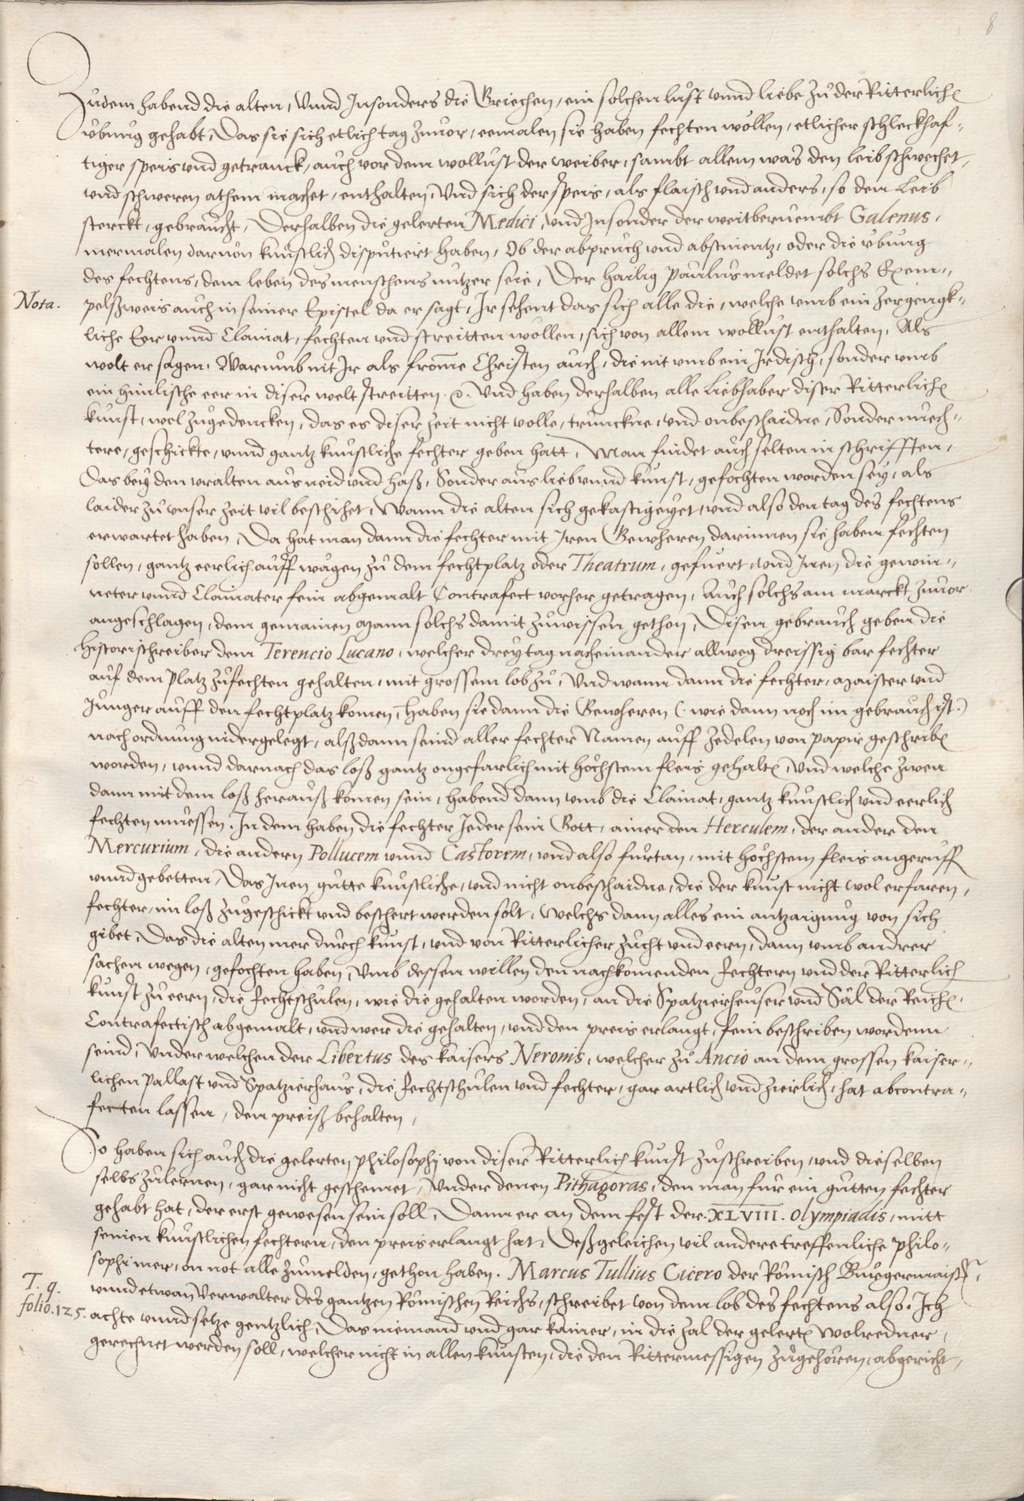 8
Zudem habend die alten, Unnd Insonders die Griechen, ein solchen lust unnd liebe zu der Ritterlich
ubung gehabt, Das sie sich etlich tag zuvor, eemalen sie haben fechten wollen, etlicher schleckhaf-
tiger speis und getranck, auch vor dem wollust der weiber, sambt allem was den leib schwechet
und schweren athem machet, enthalten, Und sich der speis, als flaisch und anders, so den Leib
sterckt, gebraucht, Derhalben die gelerten Medici, und Insonder der weitberuembt Galenus,
mermalen darvon kunstlich disputiert haben, Ob der abpruch und abstinentz, oder die ubung
des fechtens, dem leben des menschens nutzer seie, Der hailig Paulus meldet solchs Exem-
Nota.
pelsweis auch in seiner Epistel da er sagt, Ir sehent das sich alle die, welche umb ein zergengk-
liche Eer unnd Clainat, fechten und streitten wollen, sich von allem wollust enthalten, Als
wolt er sagen, Warumb nit Ir als frome Christen auch, die nit umb ein Irdisch, sonder umb
ein himlische eer in diser welt streitten. Und haben derhalben alle Liebhaber diser Ritterlich
kunst, wol zugedencken, das es diser zeit nicht volle, trunckne, und onbeschaidne, Sonder nuech-
tere, geschickte, unnd gantz kunstliche fechter geben hatt, Man findet auch selten in schrifften,
Das bey den uralten aus neid und haß, Sonder aus lieb unnd kunst, gefochten worden sey, als
laider zu unser zeit vil beschihet, Wann die alten sich gekastigeyet, und also den tag des fechtens
erwartet haben, Da hat man dann die fechter mit Iren Gewheren darinnen sie haben fechten
sollen, gantz eerlich auff wägen zu dem fechtplatz oder Theatrum, gefuert, und Inen die gewin-
neter unnd Clainater fein abgemalt Contrafect vorher getragen, Auch solchs am marckt zuvor
angeschlagen, dem gemainen Mann solchs damit zuwissen gethon, Disen gebrauch geben die
Historischreiber dem Terencio Lucano, welcher drey tag nacheinander allweg dreissig bar fechter
auf dem platz zufechten gehalten, mit grossem lob zu, Und wann dann die fechter, Maister und
Junger auff den fechtplatz komen, haben sie dann die Gewheren (wie dann noch im gebrauch ist.)
nach ordnung nidergelegt, alß dann seind aller fechter Namen auff zedelen von papir geschrib
worden, unnd darnach das loß gantz ongefarlich mit höchstem fleis gehalt, Und welche zwen
dann mit dem loß herauß komen sein, habend dann umb die Clainat, gantz kunstlich und eerlich
fechten muessen. In dem haben die fechter Ieder sein Gott, ainer den Herculem, der ander den
Mercurium, die andern Pollucem unnd Castorem, und also furtan, mit höchstem fleis angerufft
unnd gebetten, Das Inen gutte kunstliche, und nicht onbeschaidne, die der kunst nicht wol erfaren,
fechter, im loß zugeschickt und beschert werden solt, Welchs dann alles ein antzaigung von sich
gibet, Das die alten mer durch kunst, und von Ritterlicher zucht und eern, dann umb andrer
sachen wegen, gefochten haben, Umb dessen willen den nachkomenden fechtern und der Ritterlich
kunst zu eern, die fechtschulen, wie die gehalten worden, an die Spatzierheuser und Säl der Reich
Contrafectisch abgemalt, und wer die gehalten, und den preis erlangt, fein beschriben worden
seind, Under welchen der Libertus des kaisers Neronis, welcher zu Ancio an dem grossen kaiser-
lichen Pallast und Spatzierhaus, die fechtschulen und fechter, gar artlich und zierlich, hat abcontra-
fecten lassen, den preiß behalten,
So haben sich auch die gelerten philosophi von diser Ritterlich kunst zuschreiben, und dieselben
selbs zulernen, gar nicht geschemet, Under denen Pithagoras, den man fur ein gutten fechter
gehabt hat, der erst gewesen sein soll, Dann er an dem fest der XLVIII. Olympiadis, mitt
seinen kunstlichen fechtern, den preis erlangt hat, Deßgeleichen vil andere treffenliche Philo-
sophi mer, on not alle zumelden, gethon haben. Marcus Tullius Cicero der Römisch Burgermaister,
T. q.
unnd etwan Verwalter des gantzen Römischen Reichs, schreibet von dem lob des fechtens also, Ich
folio. 125.
achte unnd setze gentzlich, Das niemand und gar kainer, in die zal der gelert wolredner,
gerechnet werden soll, welcher nicht in allen kunsten, die den Rittermessigen zugehören, abgericht,